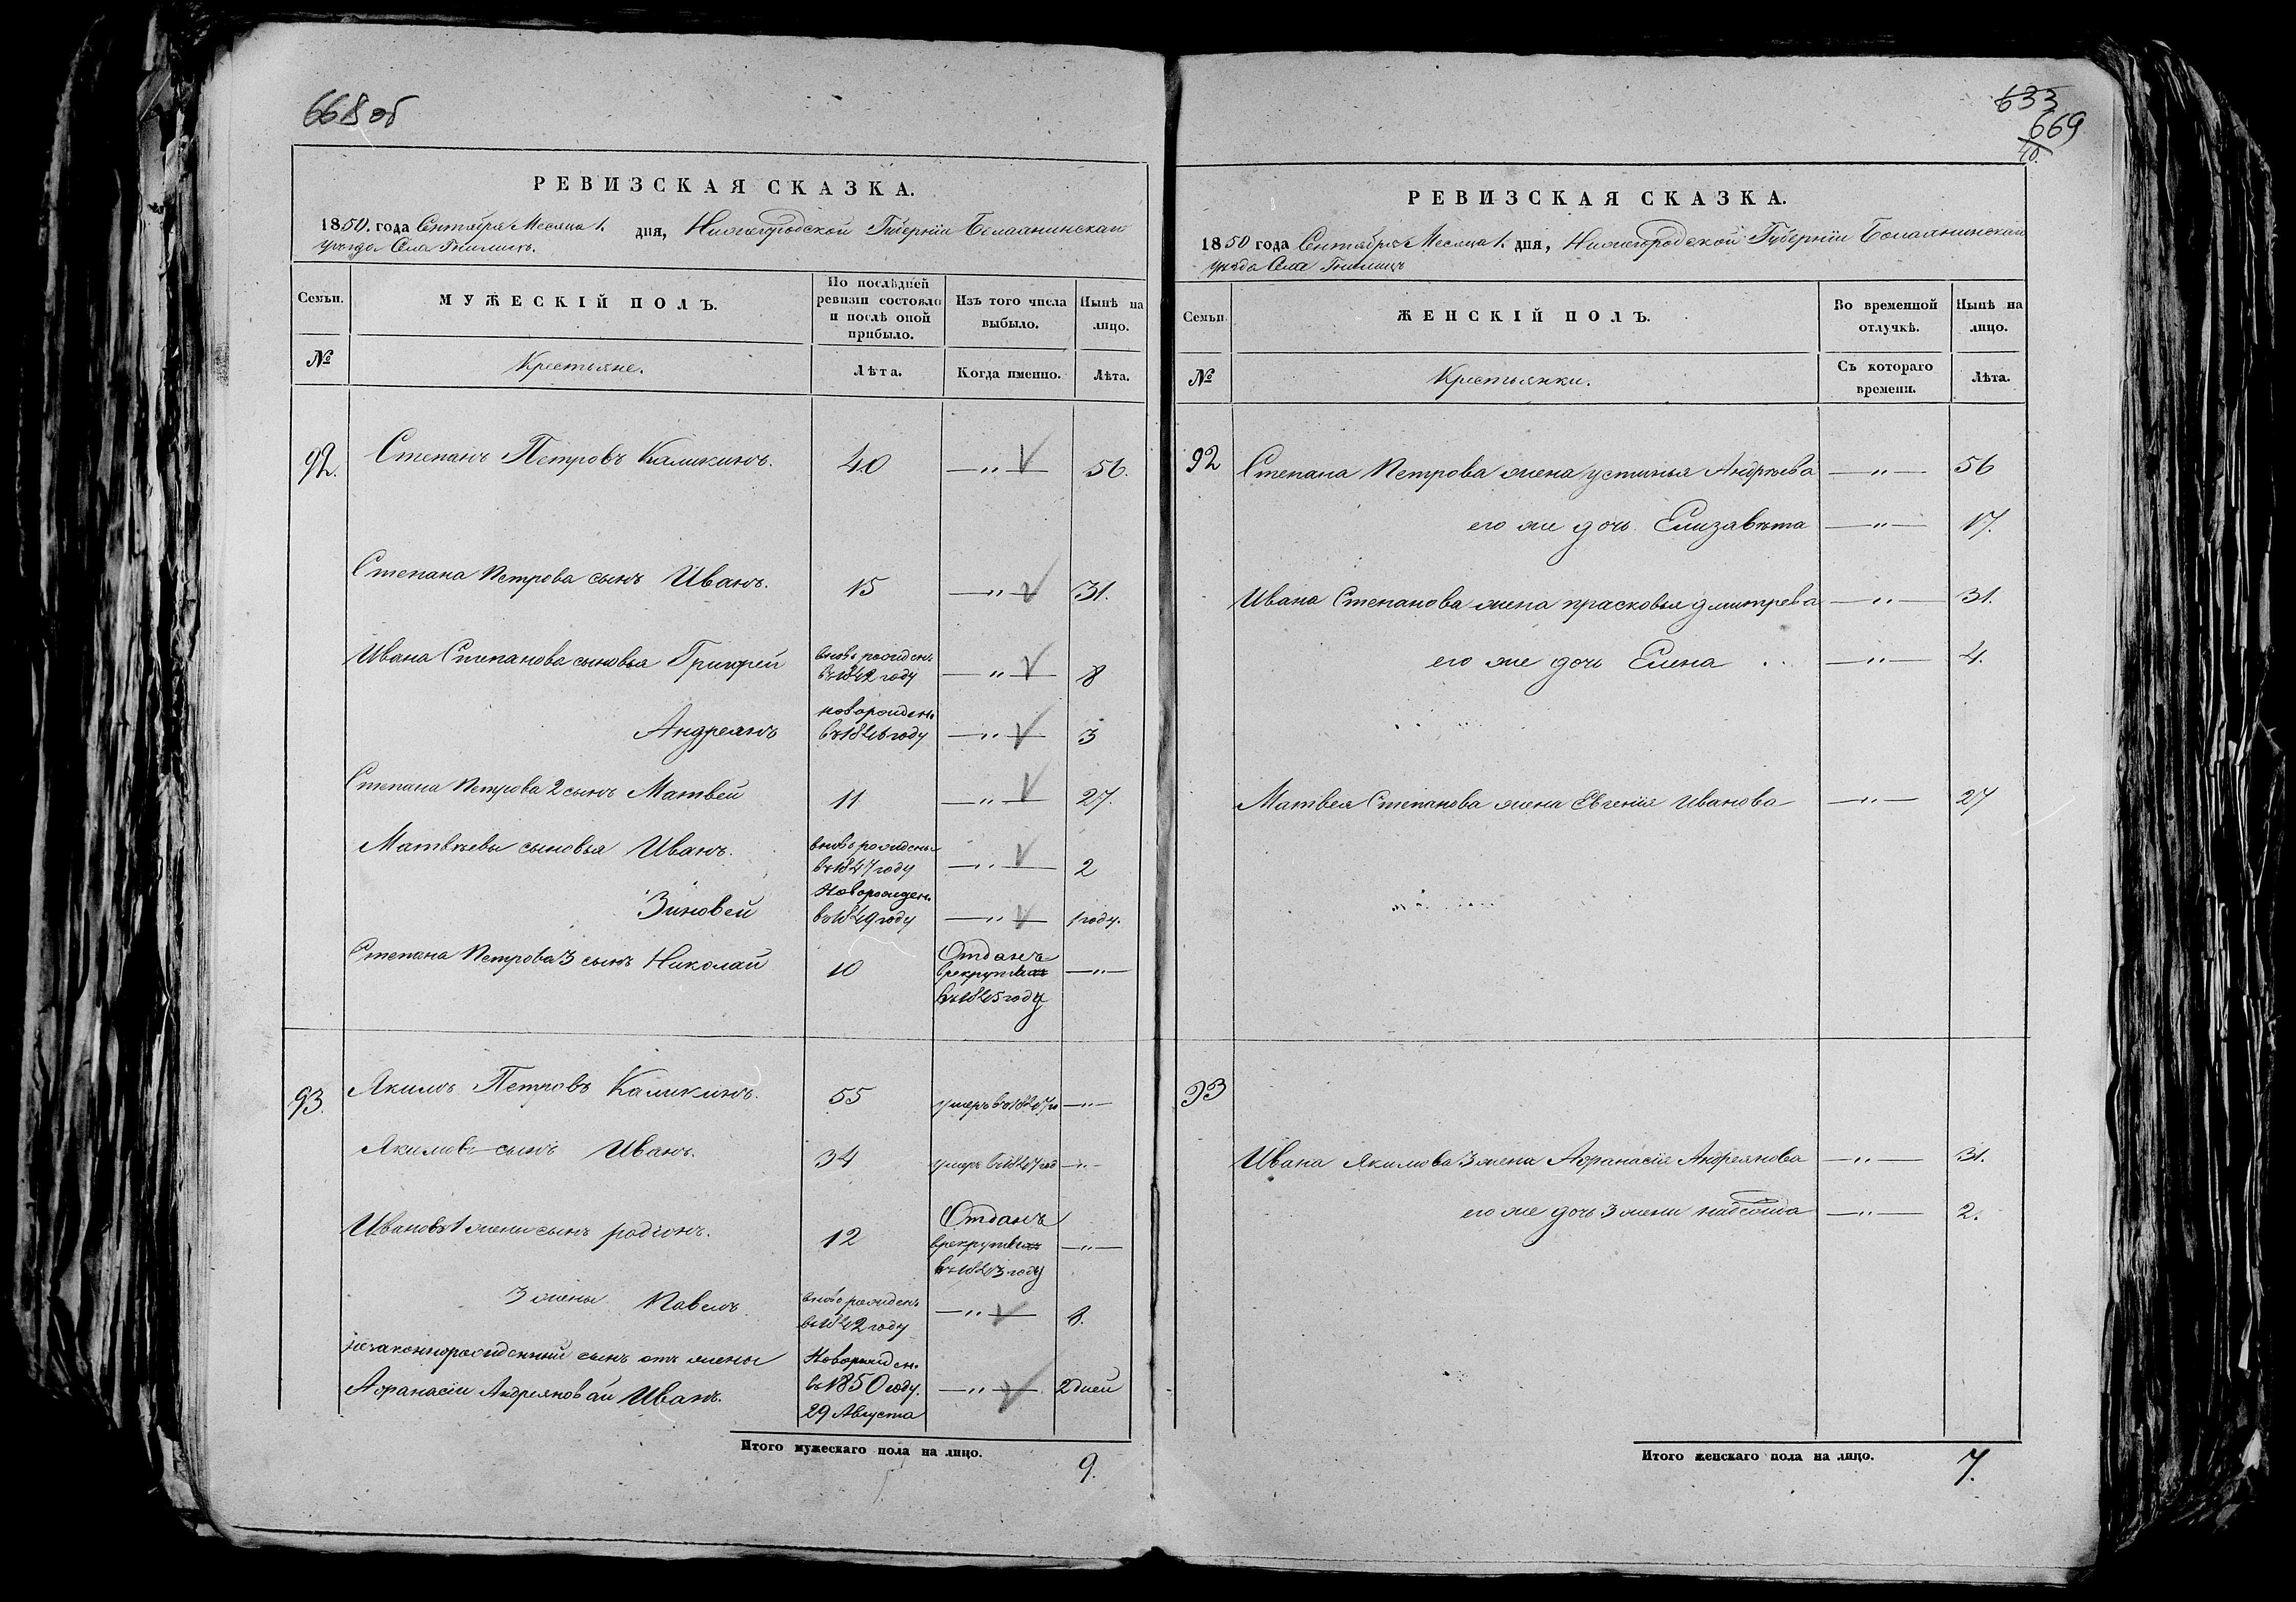 668 об
РЕВИЗСКАЯ СКАЗКА.
1850. года Сентября Месяца 1. дня, Нижегородской Губерніи Балахнинскаго
уѣзда Села Гнилицъ.
Семьи.
МУЖЕСКІЙ ПОЛЪ.
По послѣдней ревизіи состояло и послѣ оной прибыло.
Изъ того числа выбыло.
Нынѣ на лицо.
№
Крестьяне.
Лѣта.
Когда именно.
Лѣта.
92. Степанъ Петровъ Каликинъ. 40 —"— 56.
Степана Петрова сынъ Иванъ. 15 —"— 31.
Ивана Степанова сыновья Григорей вновь рожденъ въ 1842 году —"— 8
Андреянъ новорожден. въ 1846 году —"— 3
Степана Петрова 2 сынъ Матвей 11 —"— 27.
Матвѣевы сыновья Иванъ. вновь рожденъ въ 1847 году —"— 2
Зиновей Новорожден. въ 1849 году —"— 1 году.
Степана Петрова 3 сынъ Николай 10 Отданъ в рекруты въ 1845 году —"—
93. Якимъ Петровъ Каликинъ. 55 умеръ —"—
Якимовъ сынъ Иванъ. 34 умеръ въ 1847 год —"—
Ивановъ 1 жены сынъ родіонъ. 12 Отданъ в рекруты въ 1843 году —"—
3 жены Павелъ вновь рожденъ въ 1842 году —"— 8.
незаконнорожденный сынъ отъ жены Новорожден.
Афанасіи Андреяновай Иванъ. въ 1850 году. 29 Августа —"— 2 дней
Итого мужескаго пола на лицо. 9.
633
669
40.
РЕВИЗСКАЯ СКАЗКА.
1850 года Сентября Месяца 1. дня, Нижегородской Губерніи Балахнинскаго
уѣзда Села Гнилицъ
Семьи.
ЖЕНСКІЙ ПОЛЪ.
Во временной отлучкѣ.
Нынѣ на лицо.
№
Крестьянки.
Съ котораго времени.
Лѣта.
92 Степана Петрова жена устинья Андрѣева —"— 56
его же дочь Елизавѣта —"— 17.
Ивана Степанова жена прасковья дмитрева —"— 31.
его же дочь Елена —"— 4.
Матвея Степанова жена Евгенія Иванова —"— 27
93
Ивана Якимова 3 жена Афанасія Андреянова —"— 31.
его же дочь 3 жены —"— 2.
Итого женскаго пола на лицо. 7.